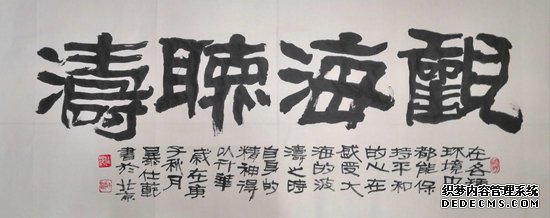 觀海聽濤
在各種
环境中
都能保
持平和
的心在
感受大
海的波
濤之時
自身的
精神得
以升華
歲在庚
子秋月
仕
書於北京
织梦内容管理系统
DEDECMS.COM